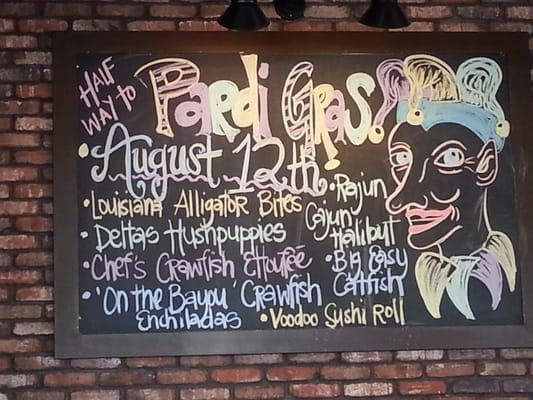 HALF
WAY to
Pardi Gras!
August 12th
• Louisiana Alligator Bites
• Deltas Hushpuppies
• Chef's Crawfish Etouféé
• 'On the Bayou' Crawfish
Enchiladas
• Rajun
Cajun
Halibut
• Big Easy
Catfish
• Voodoo Sushi Roll